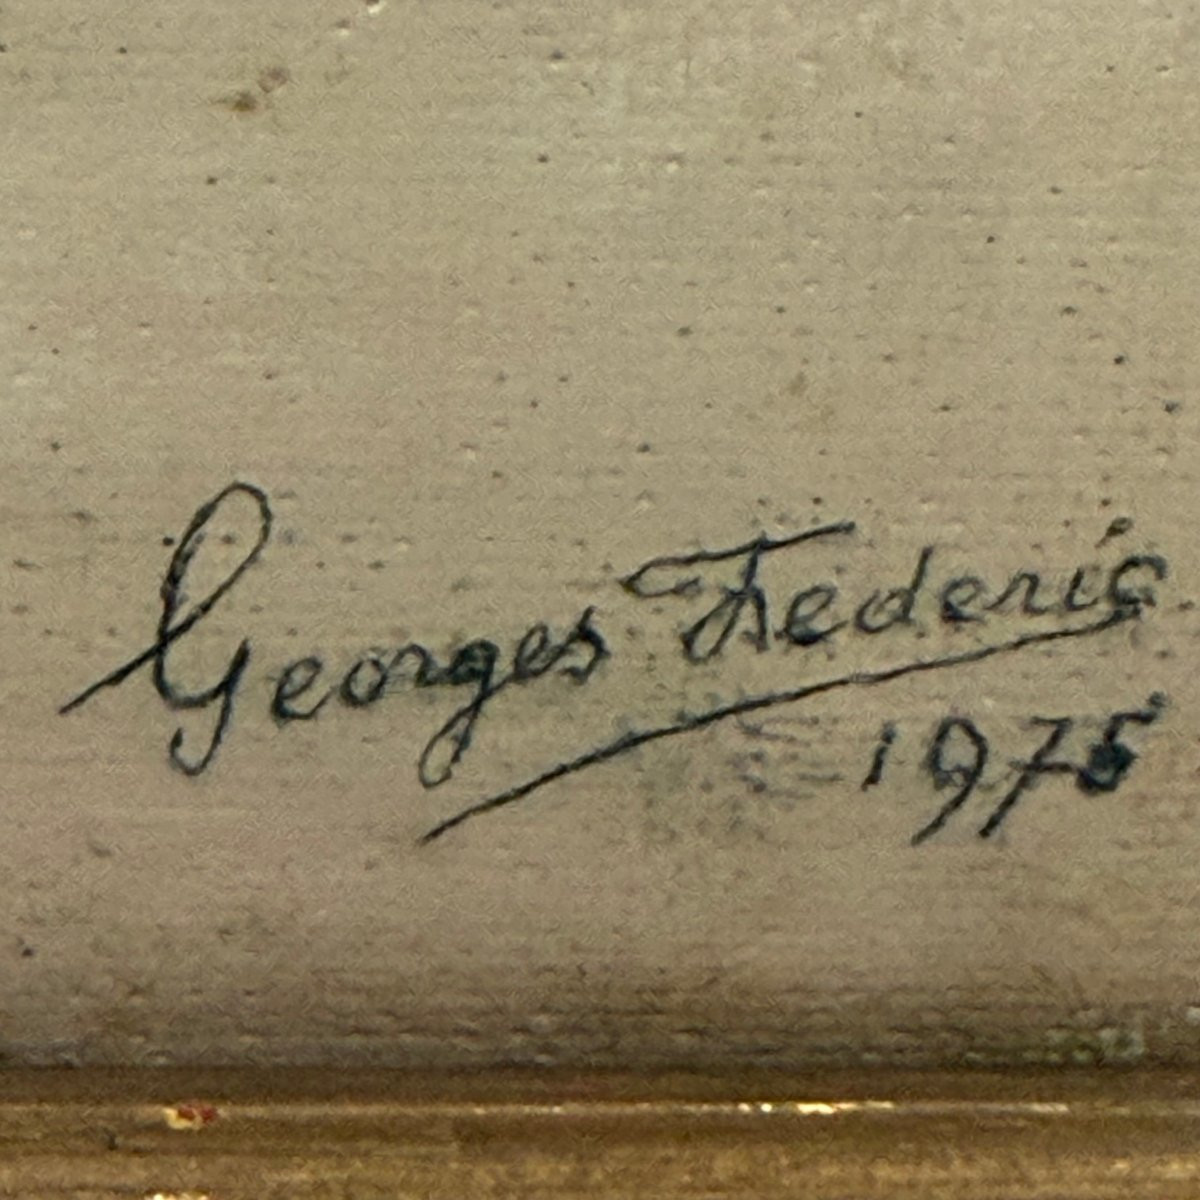 Georges Federic
1975